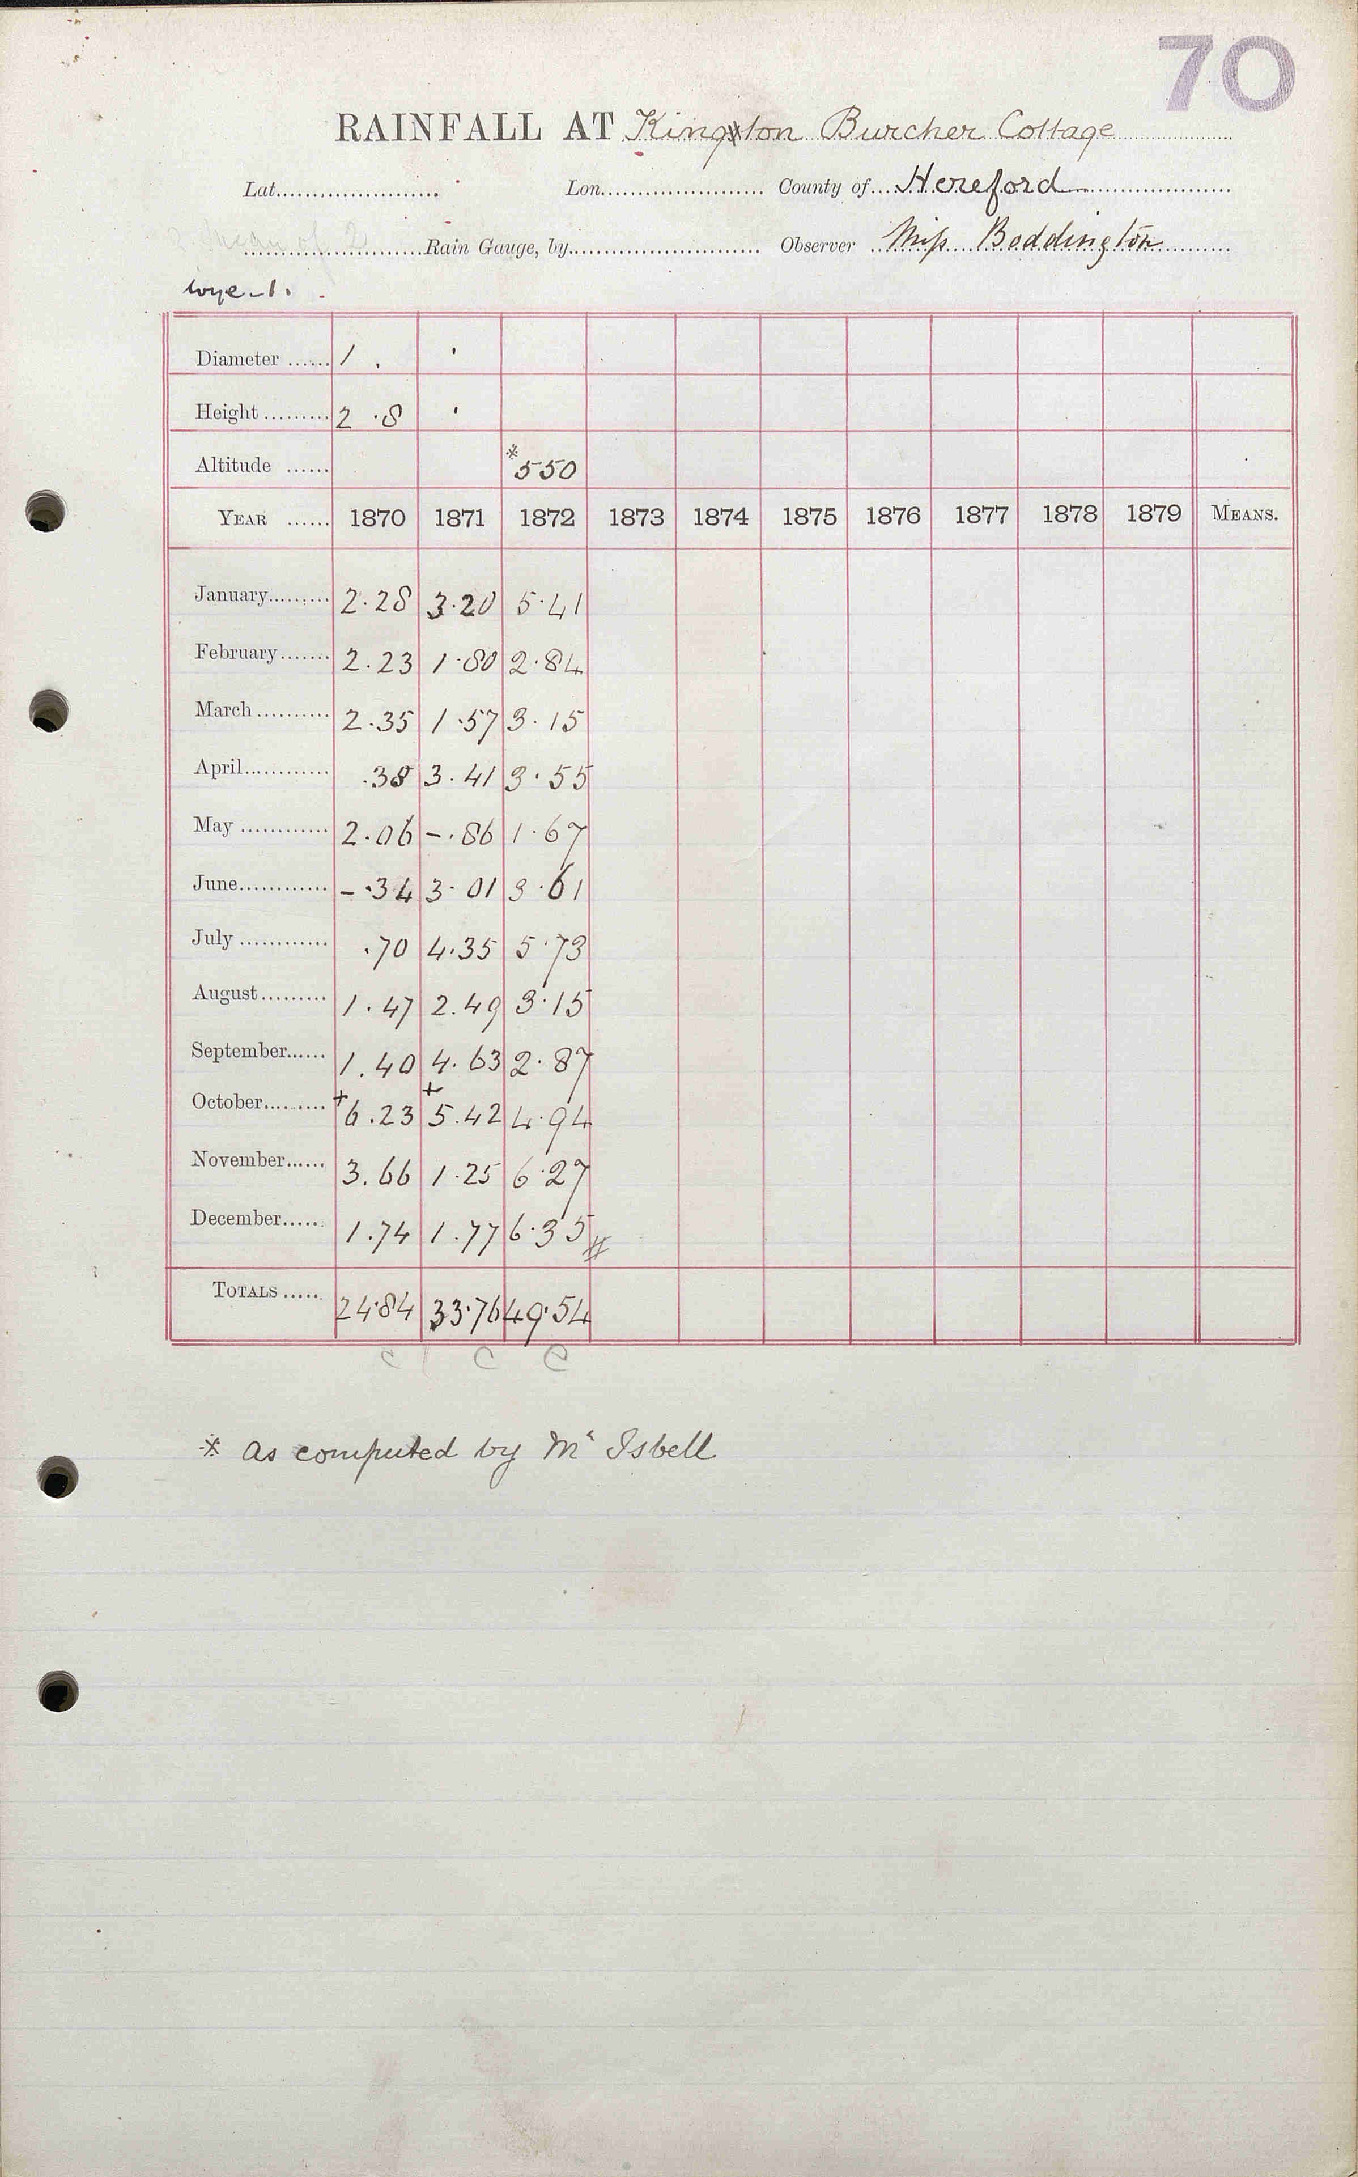 70
RAINFALL AT Kington Burcher Cottage
Lat. Lon. County of Hereford
Rain Gauge, by Observer Miss Boddington
Wye. 1.
Diameter 1 .
Height 2 .8
Altitude *550
YEAR 1870 1871 1872 1873 1874 1875 1876 1877 1878 1879 MEANS.
January 2.28 3.20 5.41
February 2.23 1.80 2.84
March 2.35 1.57 3.15
April .38 3.41 3.55
May 2.06 -.86 1.67
June -.34 3.01 3.61
July .70 4.35 5.73
August 1.47 2.49 3.15
September 1.40 4.63 2.87
October +6.23 +5.42 4.94
November 3.66 1.25 6.27
December 1.74 1.77 6.35 #
TOTALS 24.84 33.76 49.54
C C C
* as computed by Mr Isbell